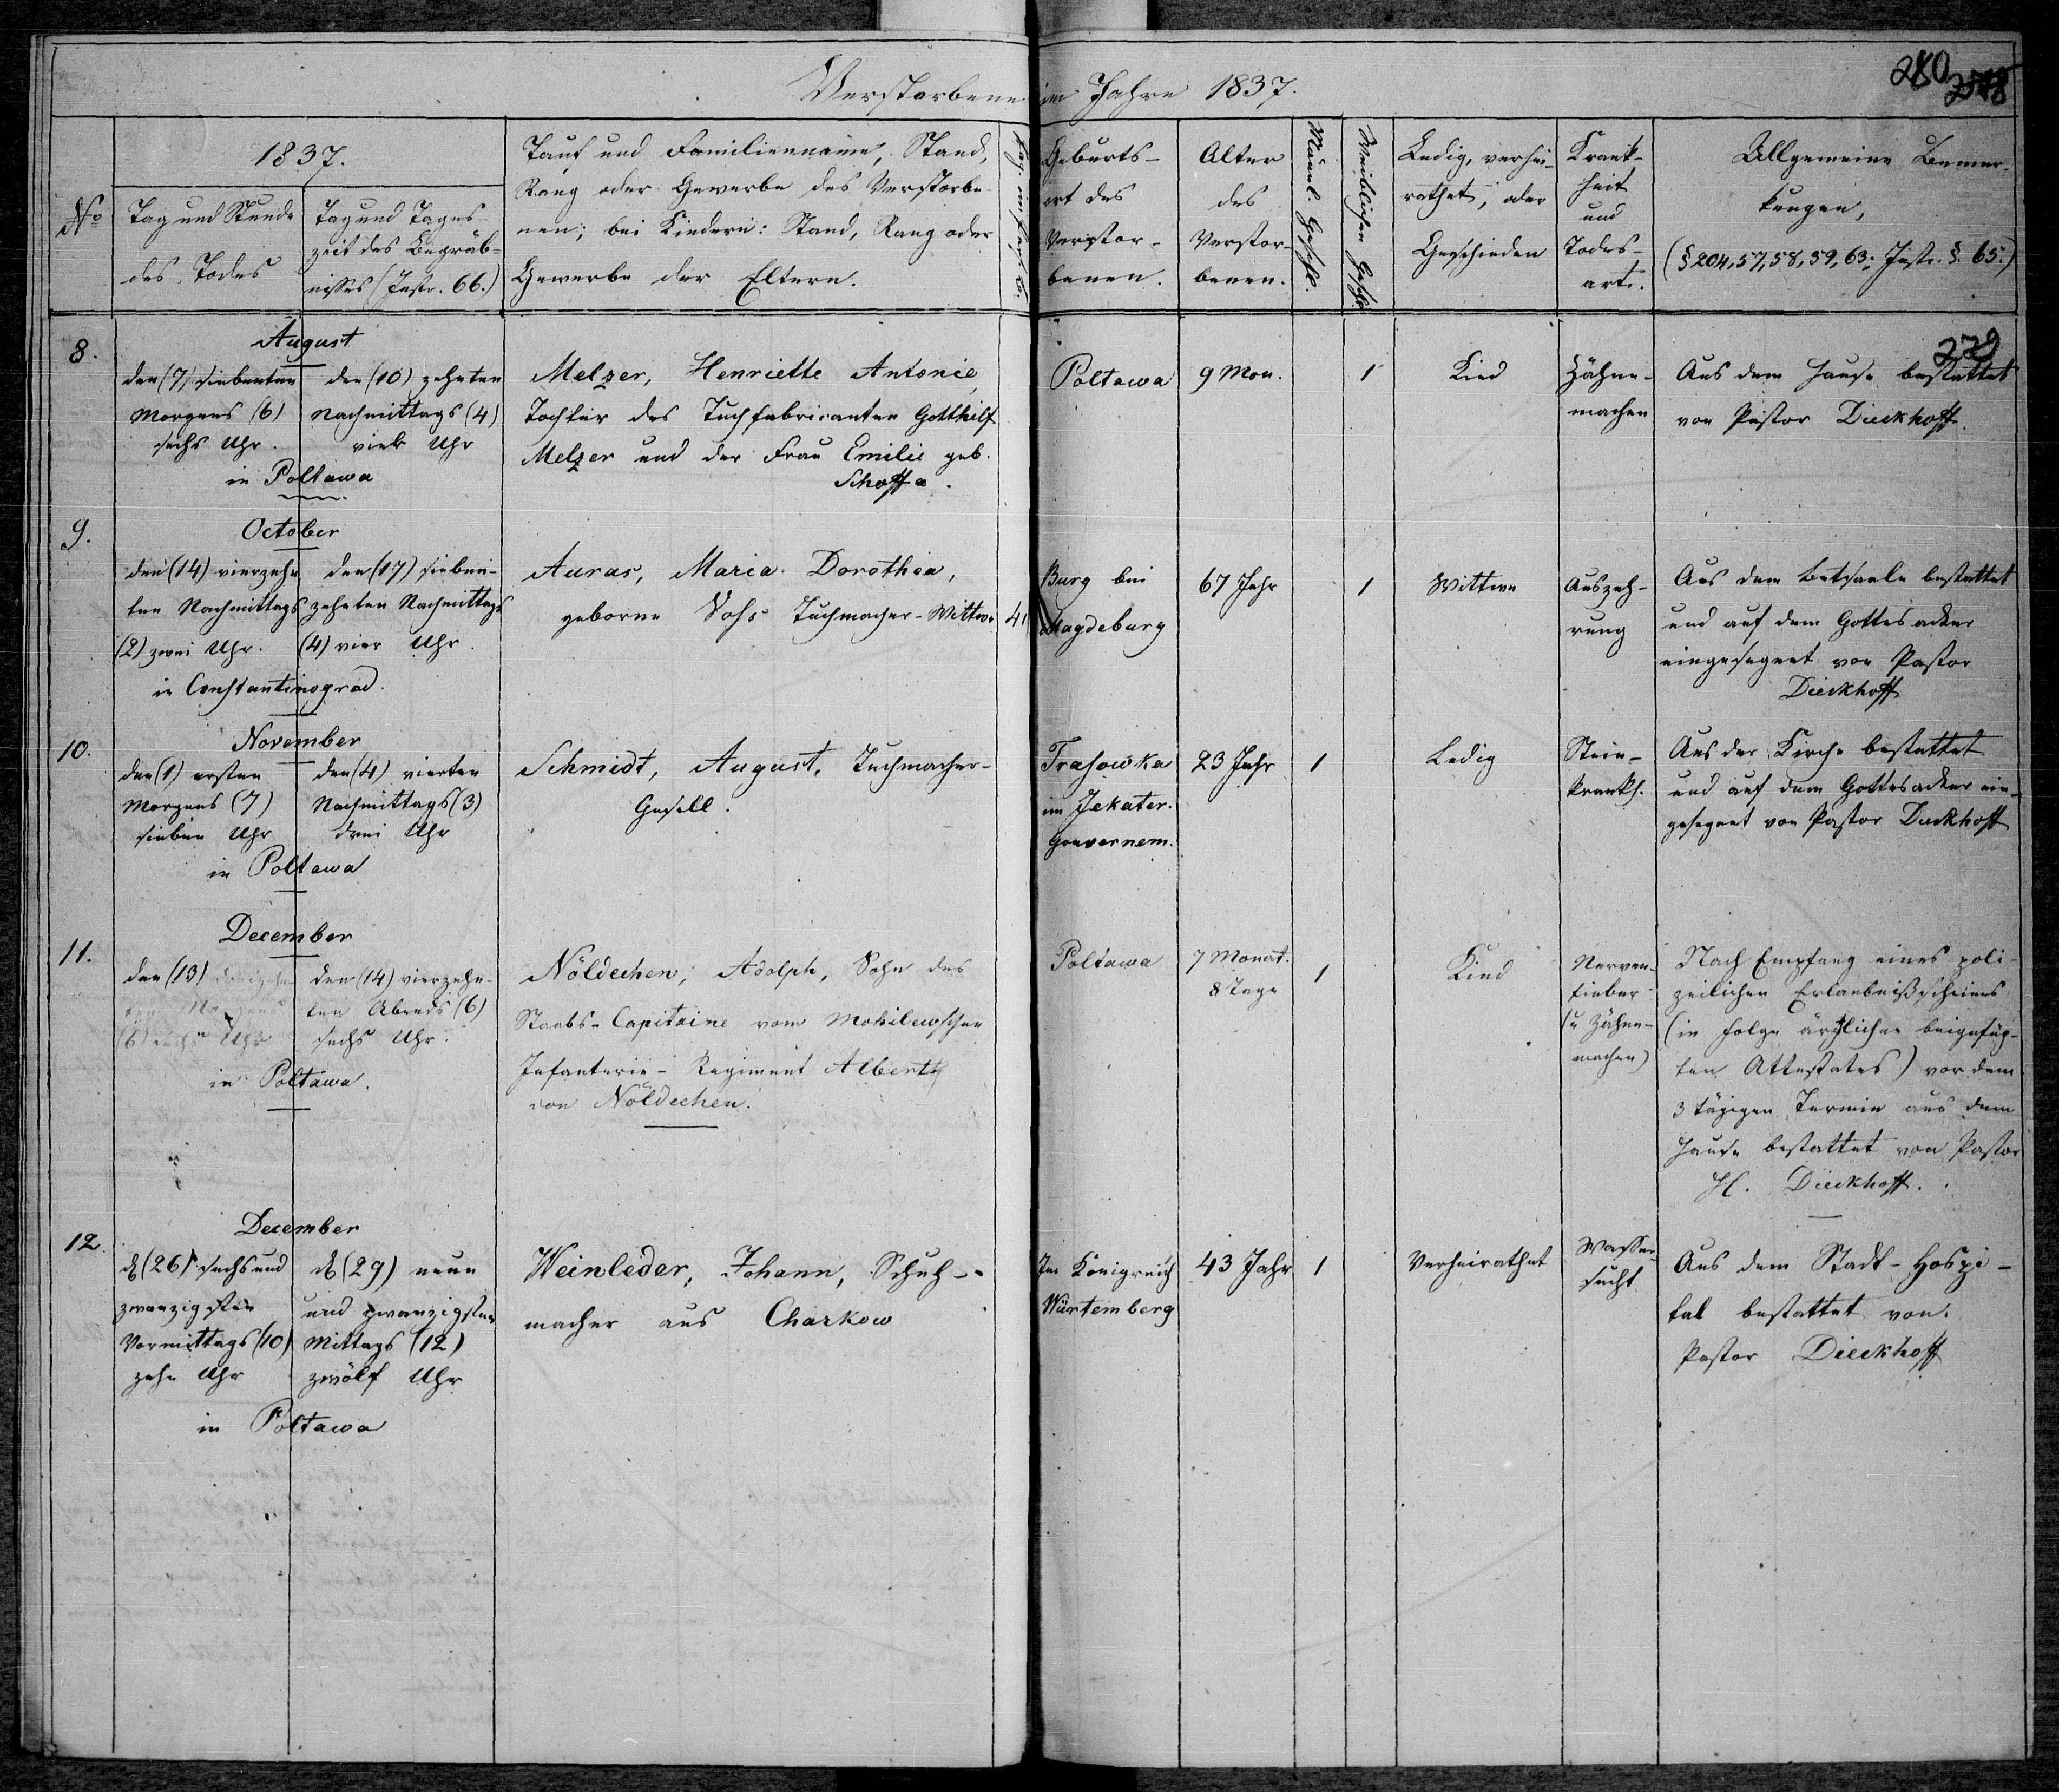 280
Verstorbene im Jahre 1837.
No
1837.
Tag und Stunde
des Todes
Tag und Tages-
zeit des Begräb-
nisses (Instr. 66.)
Tauf und Familienname, Stand,
Rang oder Gewerbe des Verstorbe-
nen; bei Kindern: Stand, Rang oder
Gewerbe der Eltern.
Geburts-
ort des
Verstor-
benen.
Alter
des
Verstor-
benen.
Männl. Geschl.
Weiblichen Geschl.
Ledig, verhei-
rathet, oder
Geschieden
Krank-
heit
und
Todes-
art.
Allgemeine Bemer-
kungen,
(§ 204, 57, 58, 59, 63; Instr. §. 65.)
229
8.
August
den (7) siebenten
Morgens (6)
sechs Uhr.
den (10) zehnten
Nachmittags (4)
vier Uhr
in Poltawa
Melzer, Henriette Antonie,
Tochter des Tuchfabricanten Gotthilf
Melzer und der Frau Emilie geb.
Schoffa.
Poltawa
9 Mon.
1
Kind
Zähne-
machen
Aus dem Hause bestattet
von Pastor Dieckhoff.
9.
October
den (14) vierzehn
ten Nachmittags
(2) zwei Uhr.
den (17) sieben-
zehnten Nachmittags
(4) vier Uhr.
in Constantinograd.
Auras, Maria Dorothea,
geborne Voss Tuchmacher-Wittwe
Burg bei
Magdeburg
67 Jahr
1
Wittwe
Auszeh-
rung
Aus dem Betsaale bestattet
und auf dem Gottesacker
eingesegnet von Pastor
Dieckhoff
10.
November
den (1) ersten
Morgens (7)
sieben Uhr
den (4) vierten
Nachmittags (3)
drei Uhr
in Poltawa
Schmidt, August, Tuchmacher-
Gesell.
im Jekater.
Gouvernem.
23 Jahr
1
Ledig
Stein-
krankh.
Aus der Kirche bestattet
und auf dem Gottesacker ein-
gesegnet von Pastor Dieckhoff
11.
December
den (13)
ten Morgens
(6) sechs Uhr
den (14) vierzehn-
ten Abends (6)
sechs Uhr.
in Poltawa.
Nöldechen, Adolph, Sohn des
Staabs-Capitaine vom Mohilewschen
Infanterie-Regiment Albert
von Nöldechen.
Poltawa
7 Monat.
8 Tage
1
Kind
Nerven-
fieber
(u Zähne-
machen)
Nach Empfang eines poli-
zeilichen Erlaubnißscheines
(in Folge ärztlichen beigefüg-
ten Attestates) vor dem
3 tägigen Termin aus dem
Hause bestattet von Pastor
H. Dieckhoff.
12.
December
d (26) sechs und
zwanzigsten
Vormittags (10)
zehn Uhr
d (29) neun
und zwanzigsten
Mittags (12)
zwölf Uhr
in Poltawa
Weinleder, Johann, Schuh-
macher aus Charkow
Im Königreich
Würtemberg
43 Jahr
1
Verheirathet
Wasser-
sucht
Aus dem Stadt-Hospi-
tal bestattet von
Pastor Dieckhoff